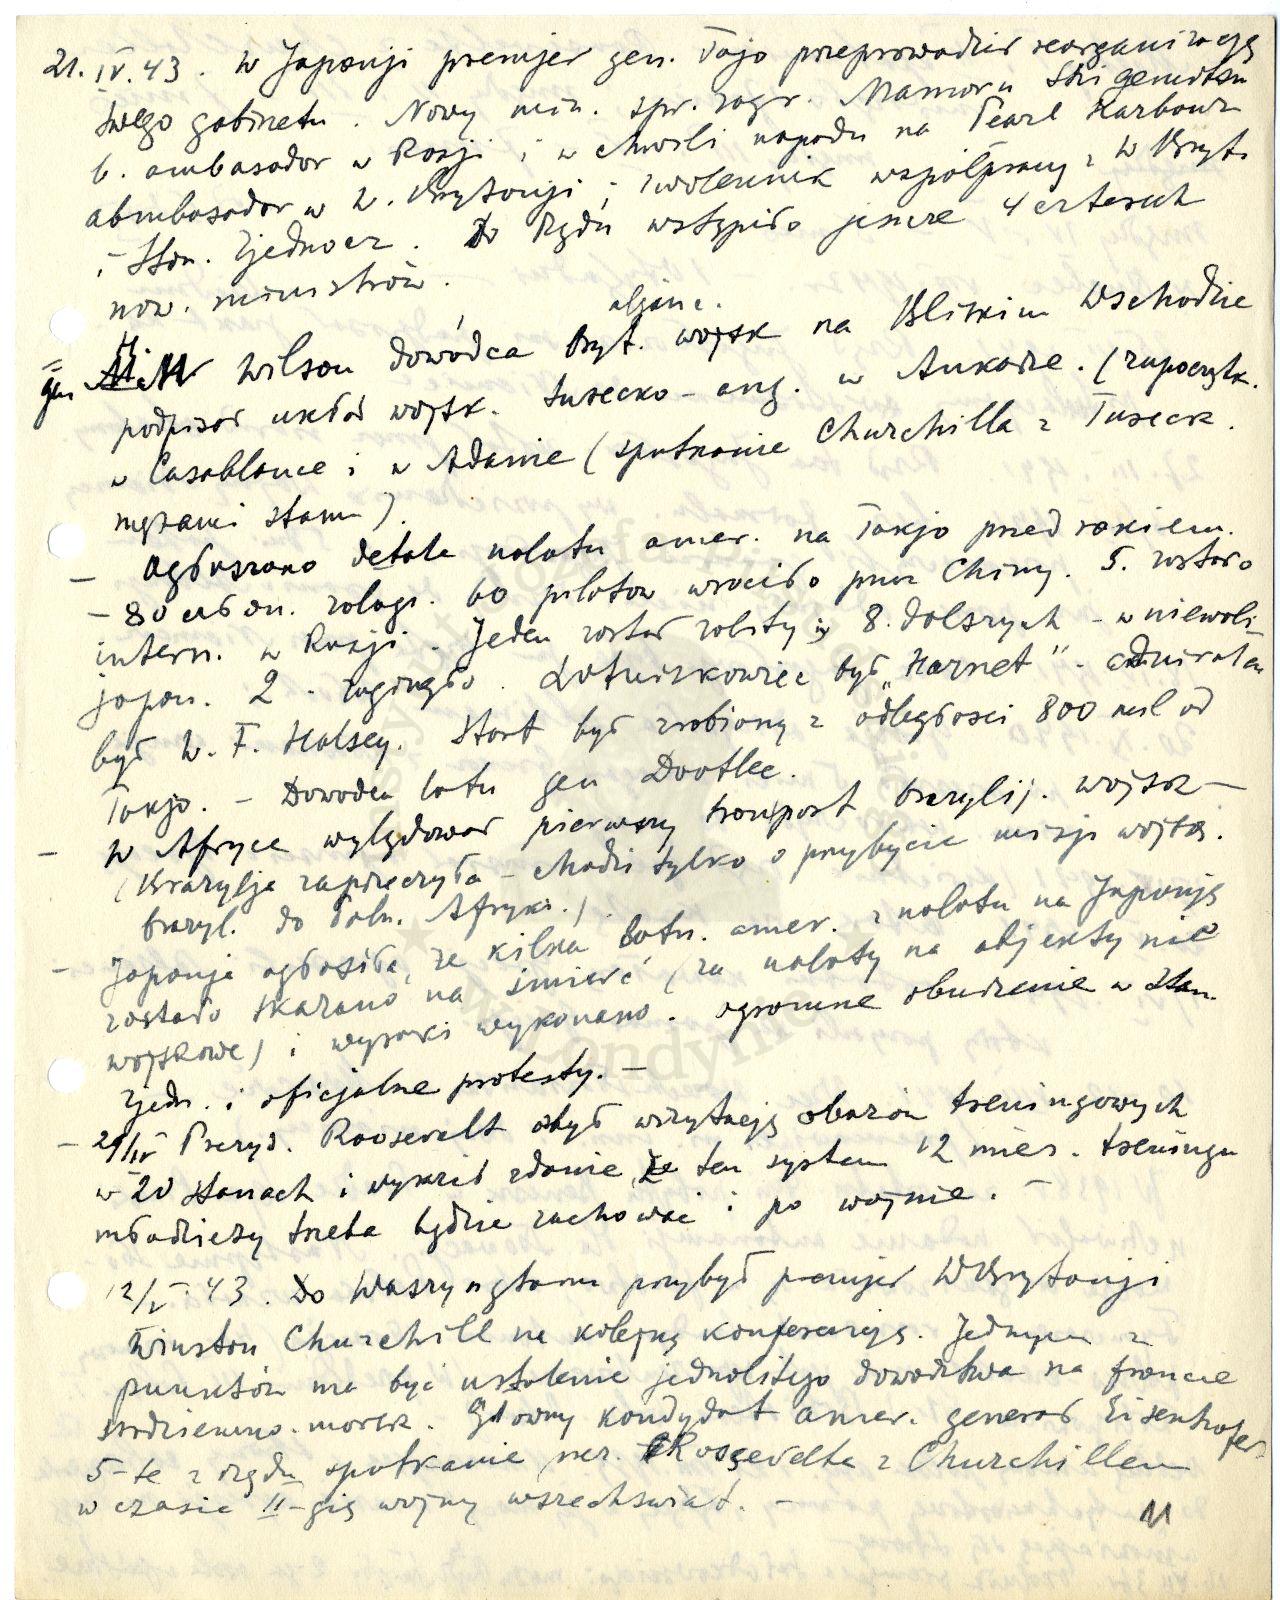 21.IV.43. W Japonji premjer gen. Tojo przeprowadził reorganizację
swego gabinetu. Nowy min. spr. zagr. Mamoru Shigemitsu
b. ambasador w Rosji i w chwili napadu na Pearl Harbour
abmbasador w W. Brytonji; zwolennik współpracy z W Bryt.
i Stan. Zjednocz. Do Rządu wstąpiło jeszcze 4 czterech
now. ministrów.
aljanc.
gen. H. Wilson dowódca bryt. wojsk na Bliskim Wschodzie
podpisał układ wojsk. turecko-ang. w Ankarze. (zapocątk.
w Casablance i w Adanie (spotkanie Churchilla z Tureck.
mężami stanu).
- Ogłoszono detale nalotu amer. na Tokjo przed rokiem.
- 80 człon. załogi. 60 pilotow wrociło przez Chiny. 5. zostało
intern. w Rosji. Jeden został zabity i 8. dalszych - w niewoli
japon. 2 - zaginęło. Lotniskowiec był „Hornet" - admirałem
był W. F. Halsey. Start był zrobiony z odległosci 800 mil od
Tokjo. - Dowodca lotu gen Dootlee.
- W Afryce wylądował pierwszy transport brazylij. wojsk -
(Brazylja zaprzeczyła - chodzi tylko o przybycie misji wojsk.
brazyl. do Połn. Afryki.)
- Japonja ogłosiła, że kilku lotn. amer. z nalotu na Japonję
zostało skazano na śmierć (za naloty na objekty nie
wojskowe) i wyroki wykonano. ogromne oburzenie w Stan.
Zjedn. i oficjalne protesty. -
- 21/IV Prezyd. Roosevelt odbył wizytację obozów treningowych
w 20 stanach i wyraził zdanie że ten system 12 mies. treningu
młodzieży trzeba będzie zachować i po wojnie. -
12/V. 43. Do Waszyngtonu przybył premjer W Brytonji
Winston Churchill na kolejną konferencję. Jednym z
punktów ma być ustalenie jednolitego dowodztwa na froncie
srodziemno-morsk. Głowny kondydat amer. generał Eisenhofer
5-te z rzędu spotkanie prez. Roosevelta z Churchillem
w czasie II-giej wojny wszechswiat. -
11